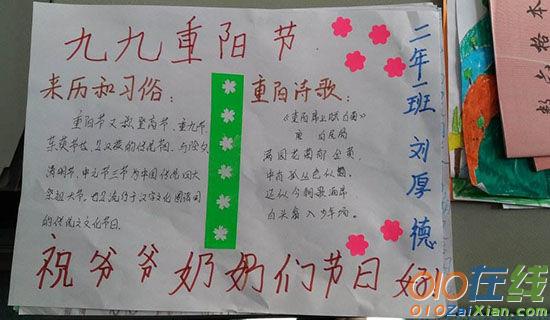 九九重阳节
来历和习俗：
重阳节又叫登高节、重九节、
茱萸节也是汉族的传统节日，与除夕
清明节、中元节三节为中国传统四大
祭祖大节。也是流行于汉字文化圈诸国
的传统文化节日。
重阳诗歌：
唐
满园花菊郁金黄，
中有孤丛色似霜。
还似今朝歌酒席
白头翁入少年场。
二年一班 刘厚德
祝爷爷奶奶们节日好
数学格本
010在线
010ZaiXian.com